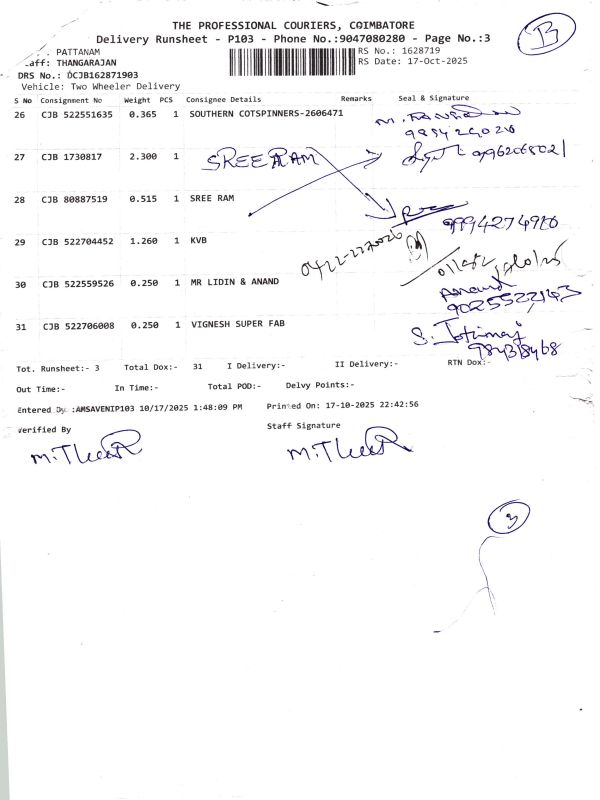 THE PROFESSIONAL COURIERS, COIMBATORE
B
Delivery Runsheet - P103 - Phone No.:9047080280 - Page No.:3
PATTANAM RS No.: 1628719
taff: THANGARAJAN RS Date: 17-Oct-2025
DRS No.: DCJB162871903
Vehicle: Two Wheeler Delivery
S No Consignment No Weight PCS Consignee Details Remarks Seal & Signature
26 CJB 522551635 0.365 1 SOUTHERN COTSPINNERS-2606471
27 CJB 1730817 2.300 1 SREE RAM
28 CJB 80887519 0.515 1 SREE RAM
29 CJB 522704452 1.260 1 KVB
30 CJB 522559526 0.250 1 MR LIDIN & ANAND Anand
9025522143
31 CJB 522706008 0.250 1 VIGNESH SUPER FAB
Tot. Runsheet:- 3 Total Dox:- 31 I Delivery:- II Delivery:- RTN Dox:-
Out Time:- In Time:- Total POD:- Delvy Points:-
Entered By: :AMSAVENIP103 10/17/2025 1:48:09 PM Printed On: 17-10-2025 22:42:56
Verified By Staff Signature
3